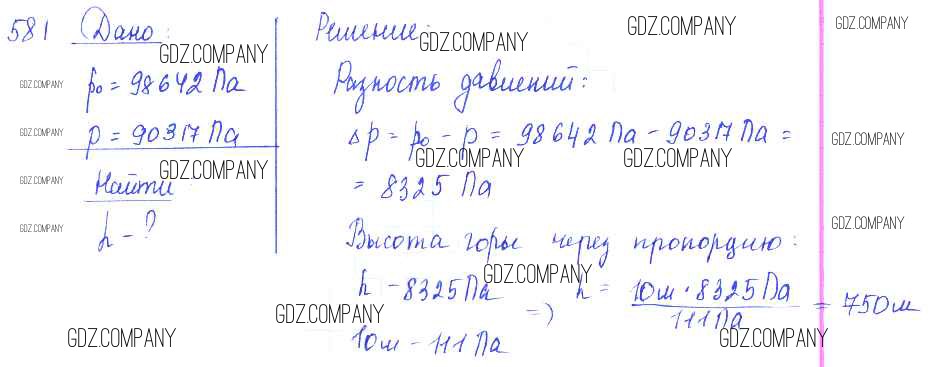 581 Дано:
p₀ = 98642 Па
p = 90317 Па
Найти
h - ?
Решение:
Разность давлений:
Δp = p₀ - p = 98642 Па - 90317 Па =
= 8325 Па
Высота горы через пропорцию:
h - 8325 Па
10м - 111 Па
=> h = 10м · 8325 Па / 111 Па = 750м
GDZ.COMPANY
GDZ.COMPANY
GDZ.COMPANY
GDZ.COMPANY
GDZ.COMPANY
GDZ.COMPANY
GDZ.COMPANY
GDZ.COMPANY
GDZ.COMPANY
GDZ.COMPANY
GDZ.COMPANY
GDZ.COMPANY
GDZ.COMPANY
GDZ.COMPANY
GDZ.COMPANY
GDZ.COMPANY
GDZ.COMPANY